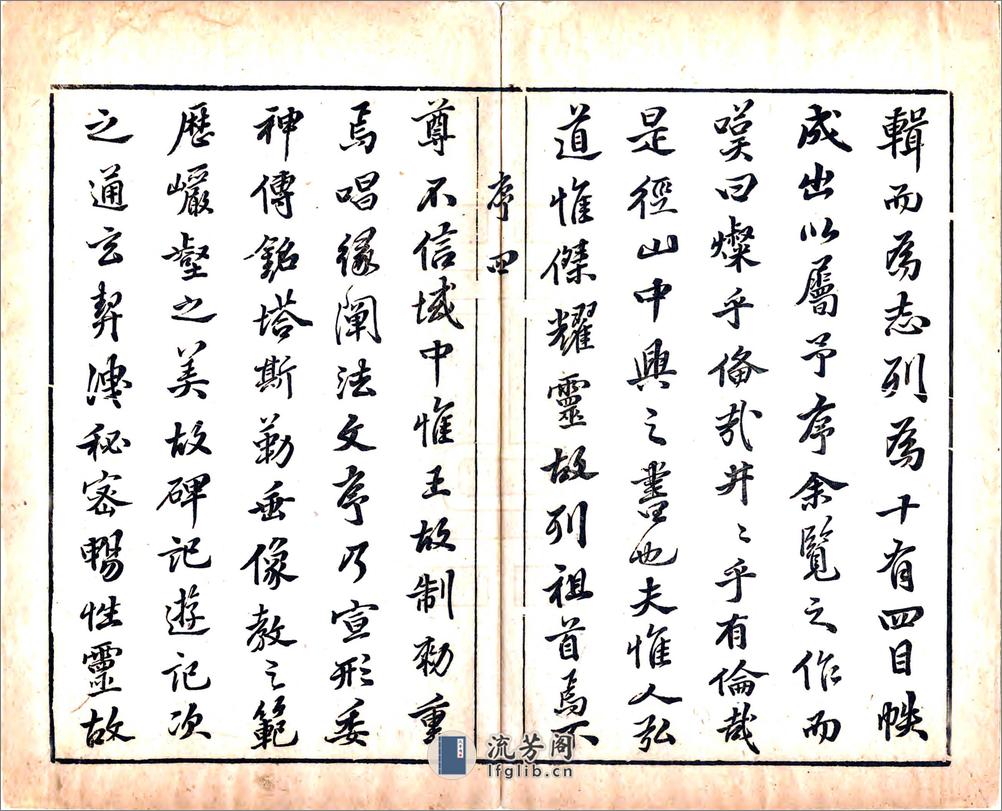 輯而為志列為十有四目帙
成出以屬予序余覽之作而
嘆曰燦乎俻哉井〻乎有倫哉
是徑山中興之書也夫惟人弘
道惟傑耀靈故列祖首焉不
序四
尊不信域中惟王故制勅重
焉唱緣闡法文序乃宣形委
神傳銘塔斯勒垂像教之範
歷巖壑之美故碑記遊記次
之通玄契溥秘密暢性靈故
流芳阁
lfglib.cn